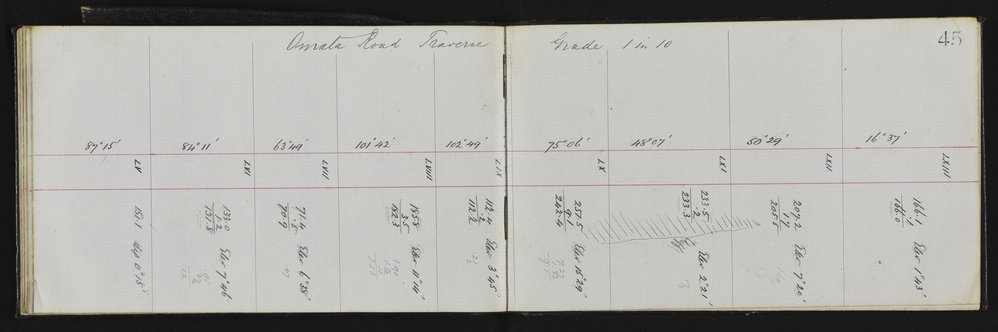 45
Omata Road Traverse Grade 1 in 10
87°15' 84°11' 63°49' 101°42' 102°49' 75°06' 48°07' 50°29' 16°37'
LV
LVI
LVII
LVIII
LIX
LX
LXI
LXII
LXIII
151.1 dep 0°18'
133.0 Elev 7°46'
1.2
131.8
71.4 Elev 6°38'
.5
70.9
155.8 Elev 11°14'
3.5
152.3
112.4 Elev 3°45'
.2
112.2
251.5 Elev 15°29'
9.1
242.4
233.5 Elev 2°21'
.2
233.3
207.2 Elev 7°20'
1.7
205.5
166.1 Elev 1°43'
.1
166.0